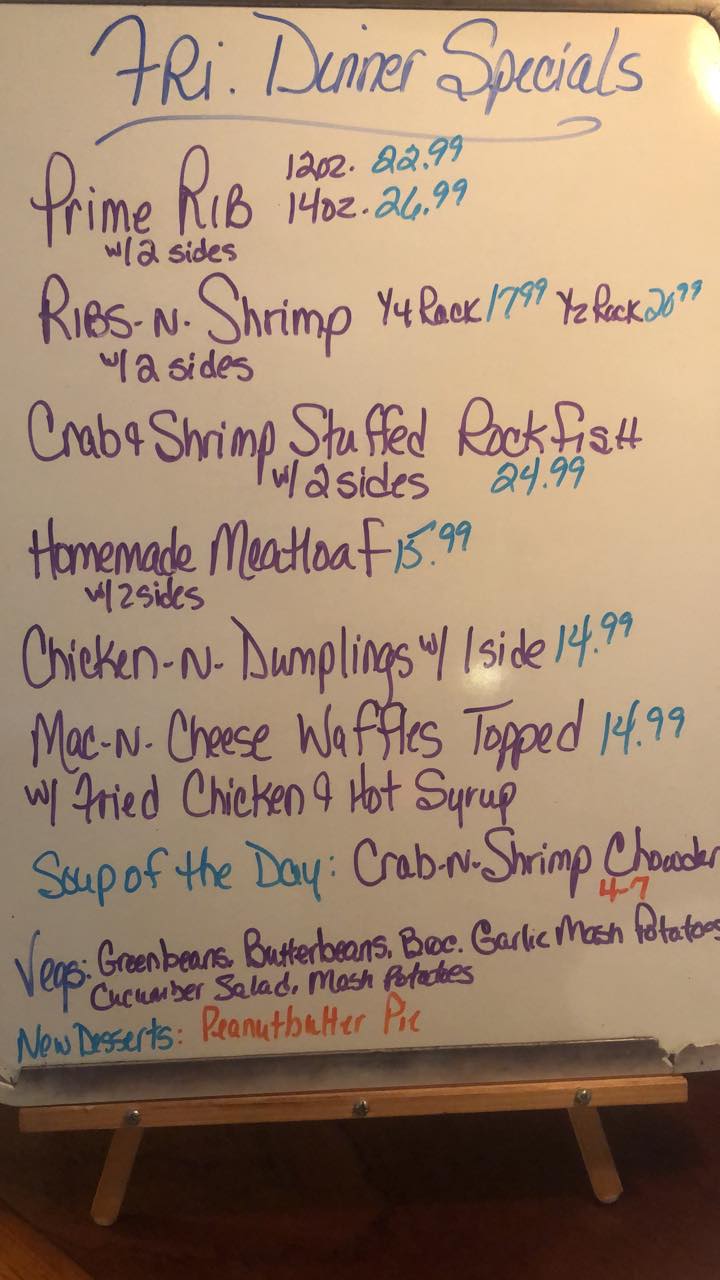 FRi. Dinner Specials
Prime RIB 12oz. 22.99
14oz. 26.99
w/2 sides
RIBS-N-Shrimp 1/4 Rack 17.99 1/2 Rack 20.99
w/2 sides
Crab & Shrimp Stuffed Rockfish
w/2 sides 24.99
Homemade Meatloaf 15.99
w/2 sides
Chicken-N-Dumplings w/ 1 side 14.99
Mac-N-Cheese Waffles Topped 14.99
w/ Fried Chicken & Hot Syrup
Soup of the Day: Crab-N-Shrimp Chowder
4-7
Vegs: Greenbeans, Butterbeans, Broc. Garlic Mash Potatoes
Cucumber Salad, Mash Potatoes
New Desserts: Peanutbutter Pie